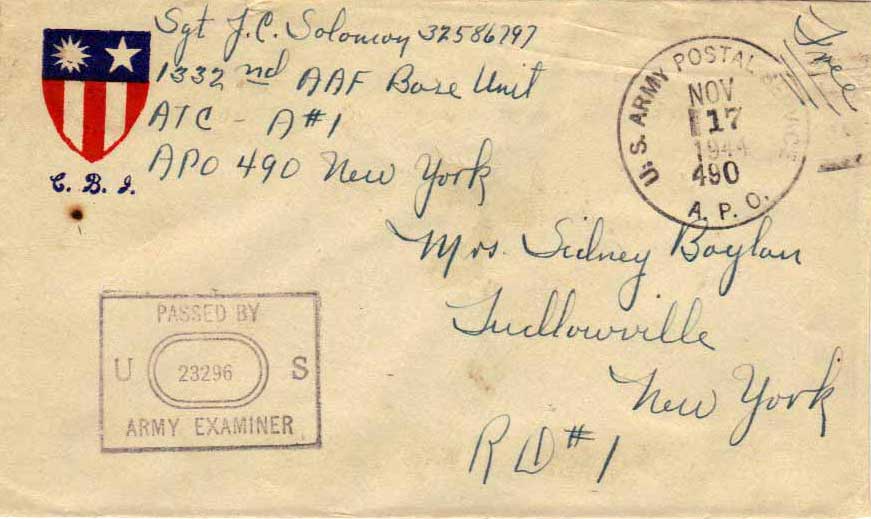 Sgt J.C. Solomon 32586797
1332nd AAF Base Unit
ATC - A#1
APO 490 New York
C. B. I.
U. S. ARMY POSTAL SERVICE
NOV
17
1944
490
A. P. O.
Free
Mrs. Sidney Boylan
Ludlowville
New York
RD #1
PASSED BY
U 23296 S
ARMY EXAMINER